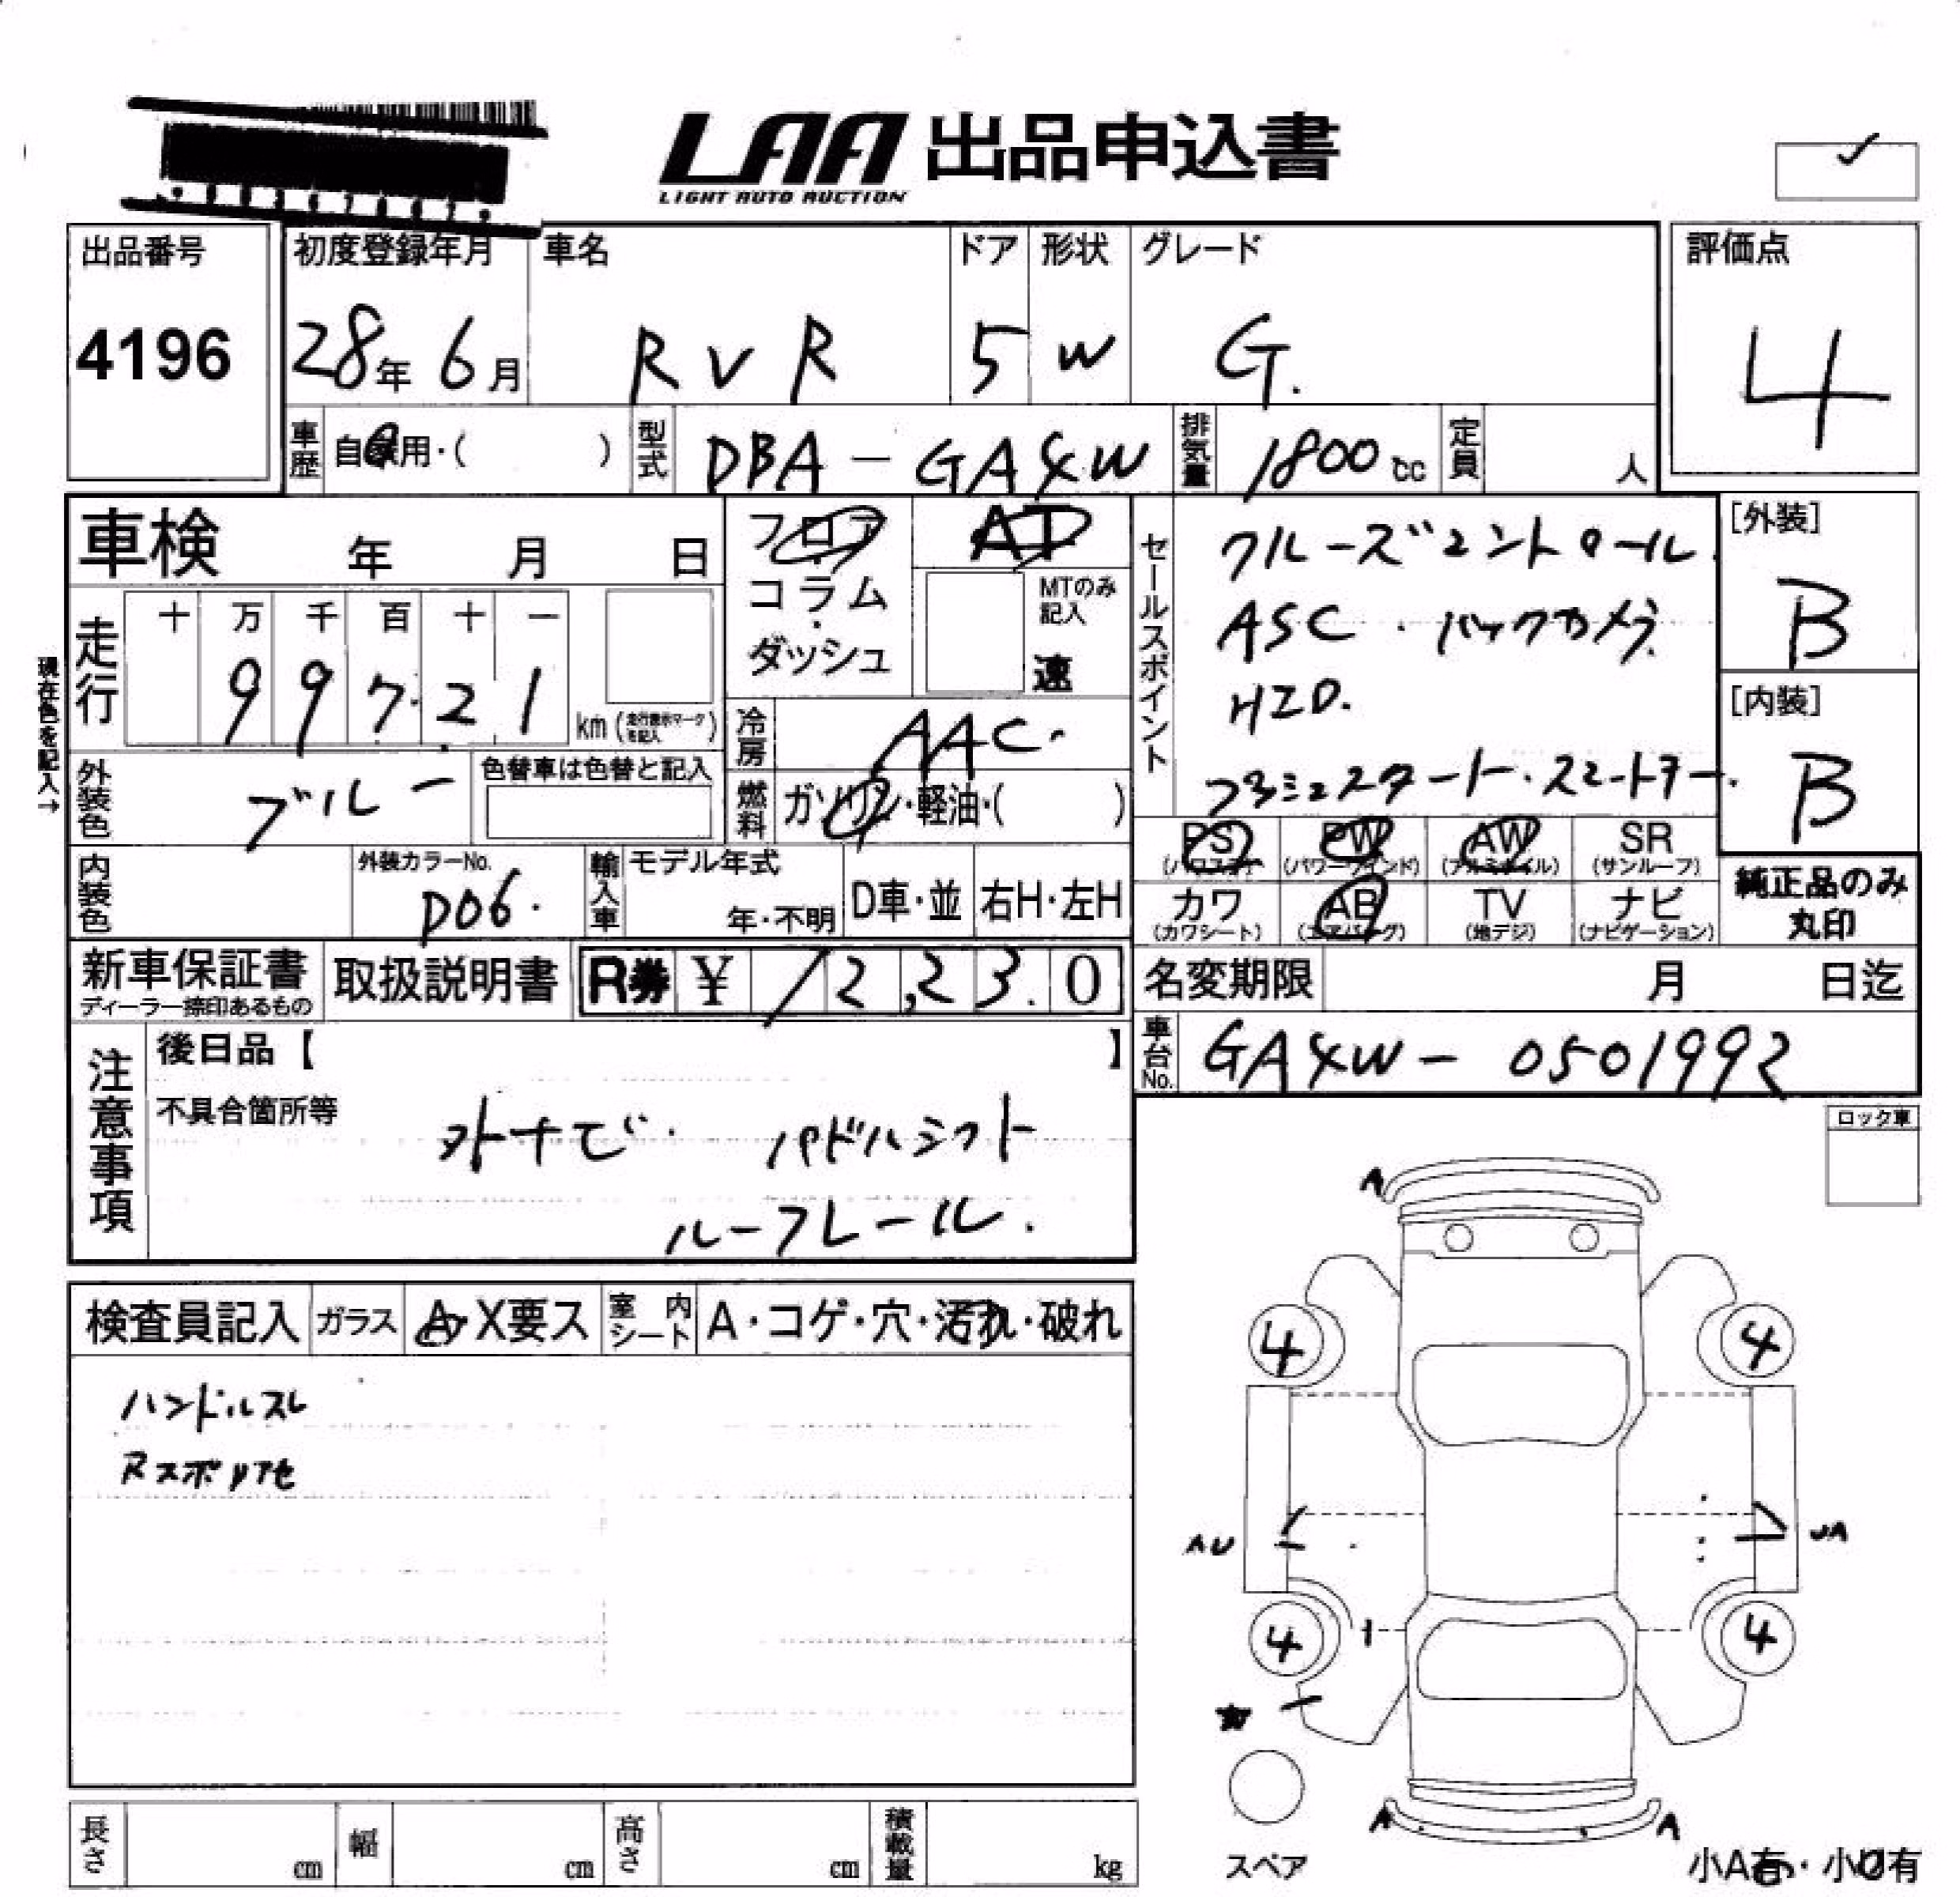 LAA 出品申込書
LIGHT AUTO AUCTION
出品番号 初度登録年月 車名 ドア 形状 グレード 評価点
4196 28年 6月 RVR 5 W G. 4
車歴 自家用・( ) 型式 DBA-GA4W 排気量 1800cc 定員 人
車検 年 月 日
フロア
コラム
ダッシュ
AT
MTのみ
記入
速
セールスポイント
クルーズコントロール.
ASC.バックカメラ.
HID.
プッシュスタート.スマートキー.
[外装]
B
[内装]
B
現在色を記入→
走行 十 万 千 百 十 一
9 9 7 2 1 km (走行表示マークを記入)
冷房 AAC.
外装色 ブルー 色替車は色替と記入
燃料 ガソリン・軽油・( )
PS PW AW SR
(パワステ) (パワーウインド) (アルミホイル) (サンルーフ)
カワ AB TV ナビ
(カワシート) (エアバッグ) (地デジ) (ナビゲーション)
純正品のみ
丸印
内装色 外装カラーNo. D06. 輸入車 モデル年式 年・不明 D車・並 右H・左H
新車保証書 取扱説明書 R券 ¥ 12,23.0
ディーラー捺印あるもの
名変期限 月 日迄
車台No. GA4W-0501992
注意事項
後日品【 】
不具合箇所等
外ナビ. パドルシフト
ルーフレール.
ロック車
検査員記入 ガラス A・X要ス 室内シート A・コゲ・穴・汚れ・破れ
ハンドルスレ
A
A
4 4
AU UA
4 4
A A
スペア
小A有・小U有
長さ cm 幅 cm 高さ cm 積載量 kg